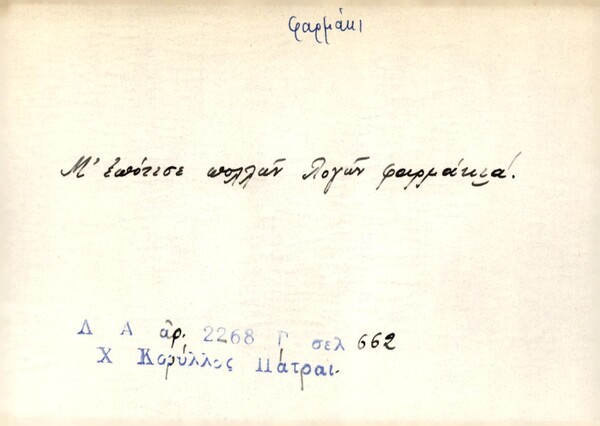 φαρμάκι
Μ' ἐπότισε πολλῶν λογῶν φαρμάκια.
Λ Α ἀρ. 2268 Γ σελ 662
Χ Κορύλλος Πάτραι